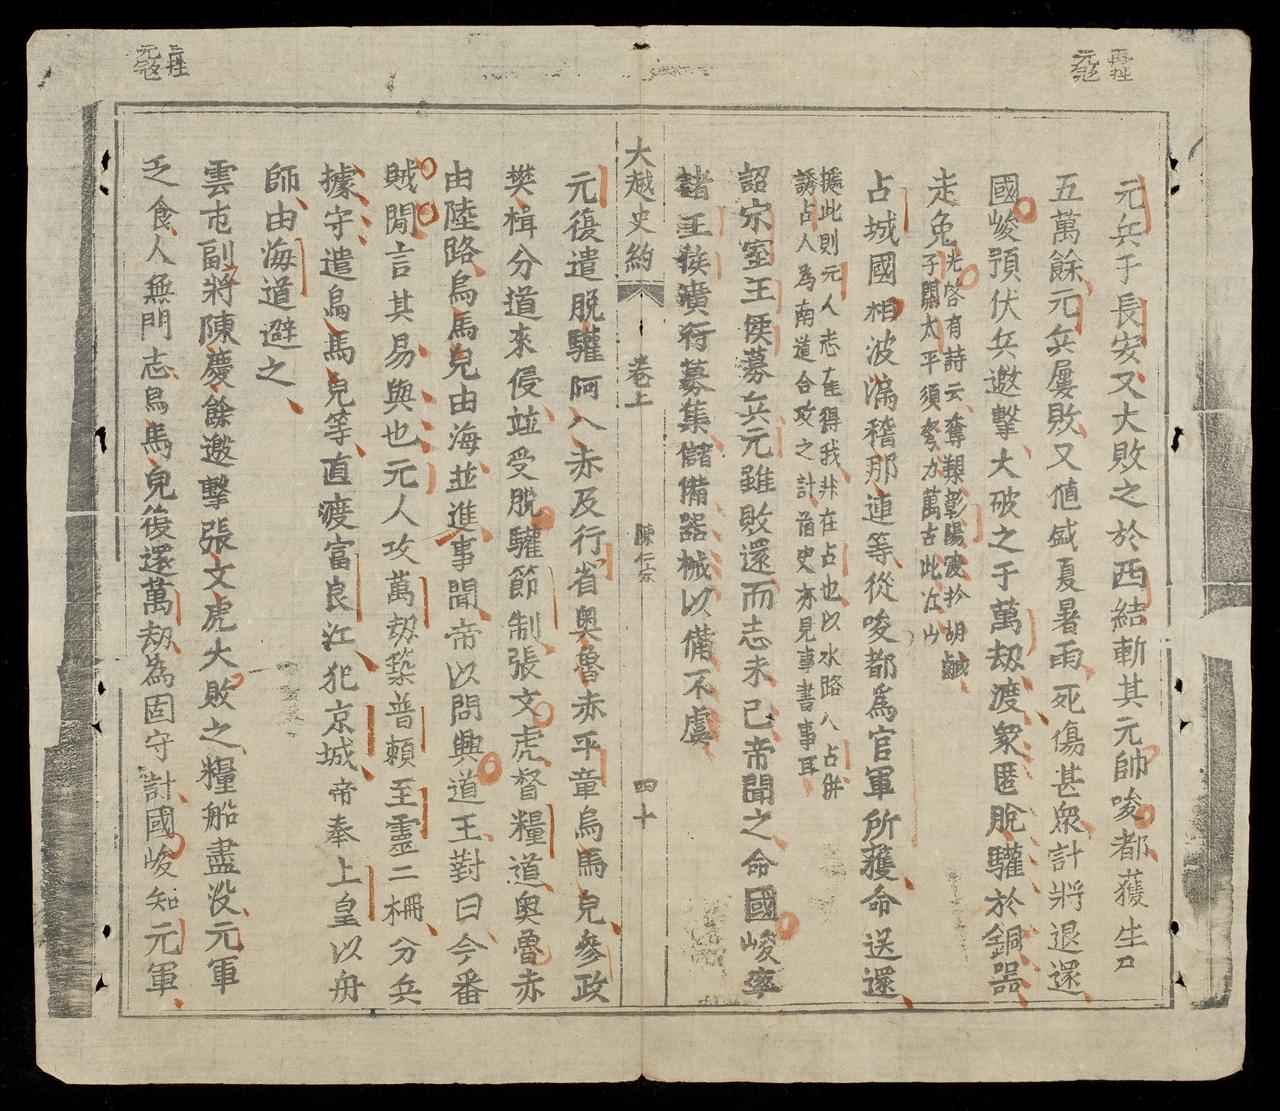 再犯
元寇
元兵于長安又大敗之於西結斬其元帥唆都獲生口
五萬餘元兵屢敗又值盛夏暑雨死傷甚衆計將退還
國峻預伏兵邀擊大破之于萬刼渡衆匿脫驩於銅器
走免光啓有詩云奪槊彰陽渡抄胡鹹
子關太平須努力萬古此江山
占城國相波漏稽那連等從唆都爲官軍所獲命送還
據此則元人志在得我非在占也以水路入占併
誘占人爲南道合攻之計舊史亦見事書事耳
詔宗室王侯募兵元雖敗還而志未已帝聞之命國峻率
諸王侯廣行募集儲備器械以備不虞
大越史約 卷上 陳仁宗 四十
元復遣脫驩阿八赤及行省奧魯赤平章烏馬兒參政
樊楫分道來侵並受脫驩節制張文虎督糧道奧魯赤
由陸路烏馬兒由海並進事聞帝以問興道王對曰今番
賊閒言其易與也元人攻萬刼築普賴至靈二柵分兵
據守遣烏馬兒等直渡富良江犯京城帝奉上皇以舟
師由海道避之
三犯
元寇
雲屯副將陳慶餘邀擊張文虎大敗之糧船盡沒元軍
乏食人無鬥志烏馬兒復還萬刼為固守計國峻知元軍